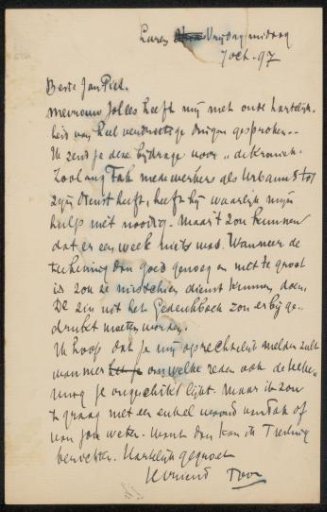 Laren Vrijdag middag
7 oct. 97
Beste Jan Piet.
Mevrouw Jolles heeft mij met onze hartelijk-
heid van heel verdrietige dingen gesproken..
Ik zend je deze bijdrage voor "de Kroniek.
Zoolang Tak medewerkers als Urbanus tot
zijn dienst heeft, heeft hij waarlijk mijn
hulp niet noodig. Maar 't zou kunnen
dat er een week niets was. Wanneer de
teekening dan goed genoeg en niet te groot
is zou ze misschien dienst kunnen doen.
De zin uit het Gedenkboek zou er bij ge-
drukt moeten worden.
Ik hoop dat je mij oprechtelijk melden zult
wanneer om welke reden ook de teeke-
ning je ongeschikt lijkt. Maar ik zou
te graag met een enkel woord van Tak of
van jou weten. Want dan kan ik
berichten. Hartelijk gegroet
Uw vriend Toon